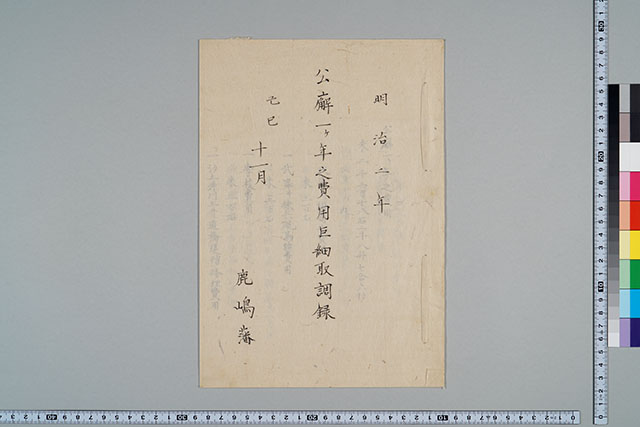 明治二年
公廨一ヶ年之費用巨細取調録
己巳
十一月
鹿嶋藩